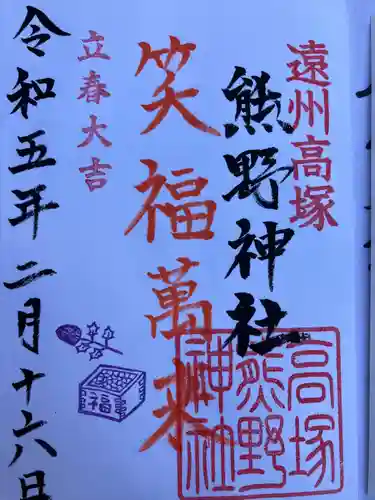 遠州高塚
熊野神社
笑福萬来
立春大吉
令和五年二月十六日
福
高塚
熊野
神社